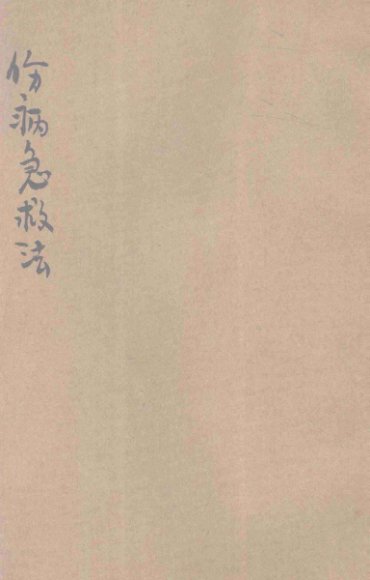 伤病急救法